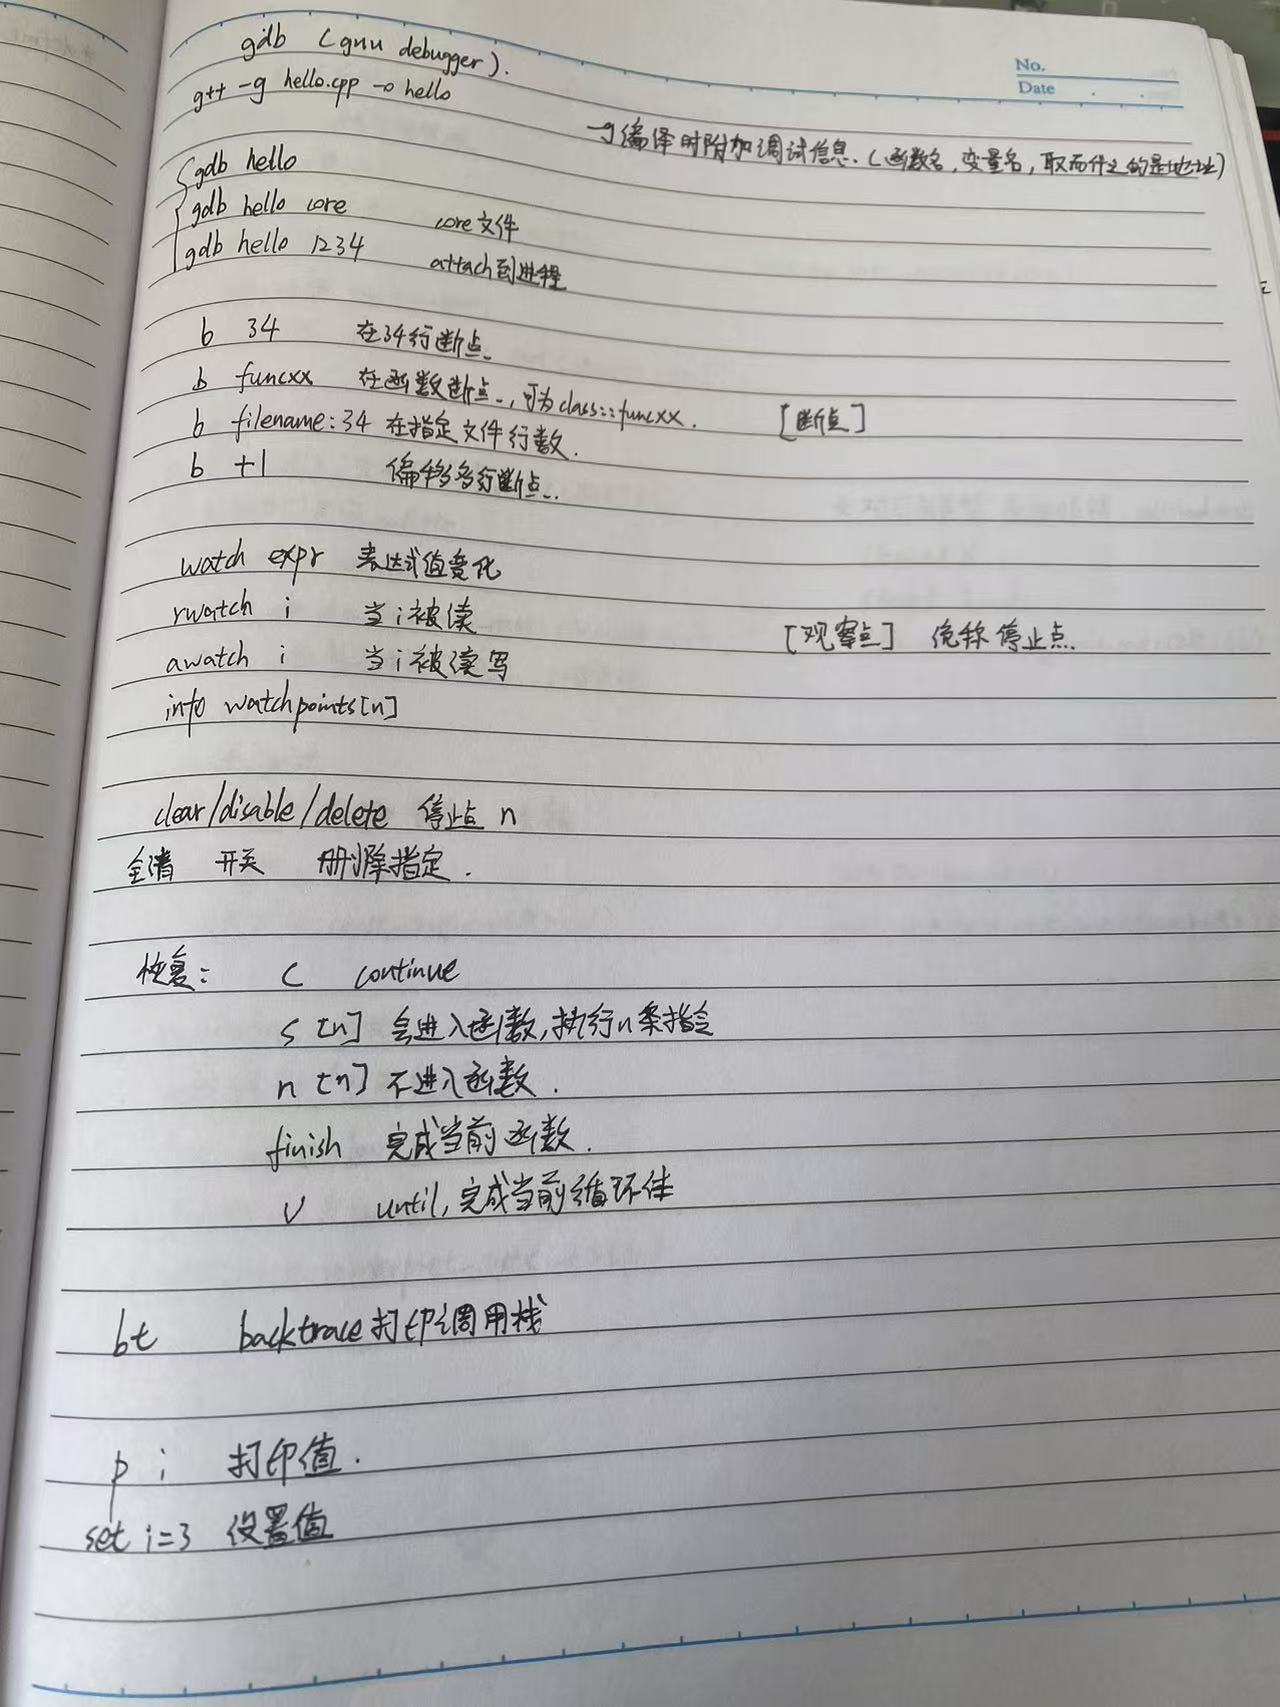 gdb (gnu debugger).
No.
Date
g++ -g hello.cpp -o hello
-g编译时附加调试信息.(函数名,变量名,取而代之的是地址)
gdb hello
gdb hello core core文件
gdb hello 1234 attach到进程
b 34 在34行断点.
b funcxx 在函数断点,可为class::funcxx.
[断点]
b filename:34 在指定文件行数.
b +1 偏移多行断点.
watch expr 表达式值变化
rwatch i 当i被读
[观察点] 统称停止点.
awatch i 当i被读写
info watchpoints[n]
clear/disable/delete 停止点 n
全清 开关 删除指定.
恢复: c continue
s [n] 会进入函数,执行n条指令
n [n] 不进入函数.
finish 完成当前函数.
U until,完成当前循环体
bt backtrace打印调用栈
p i 打印值.
set i=3 设置值